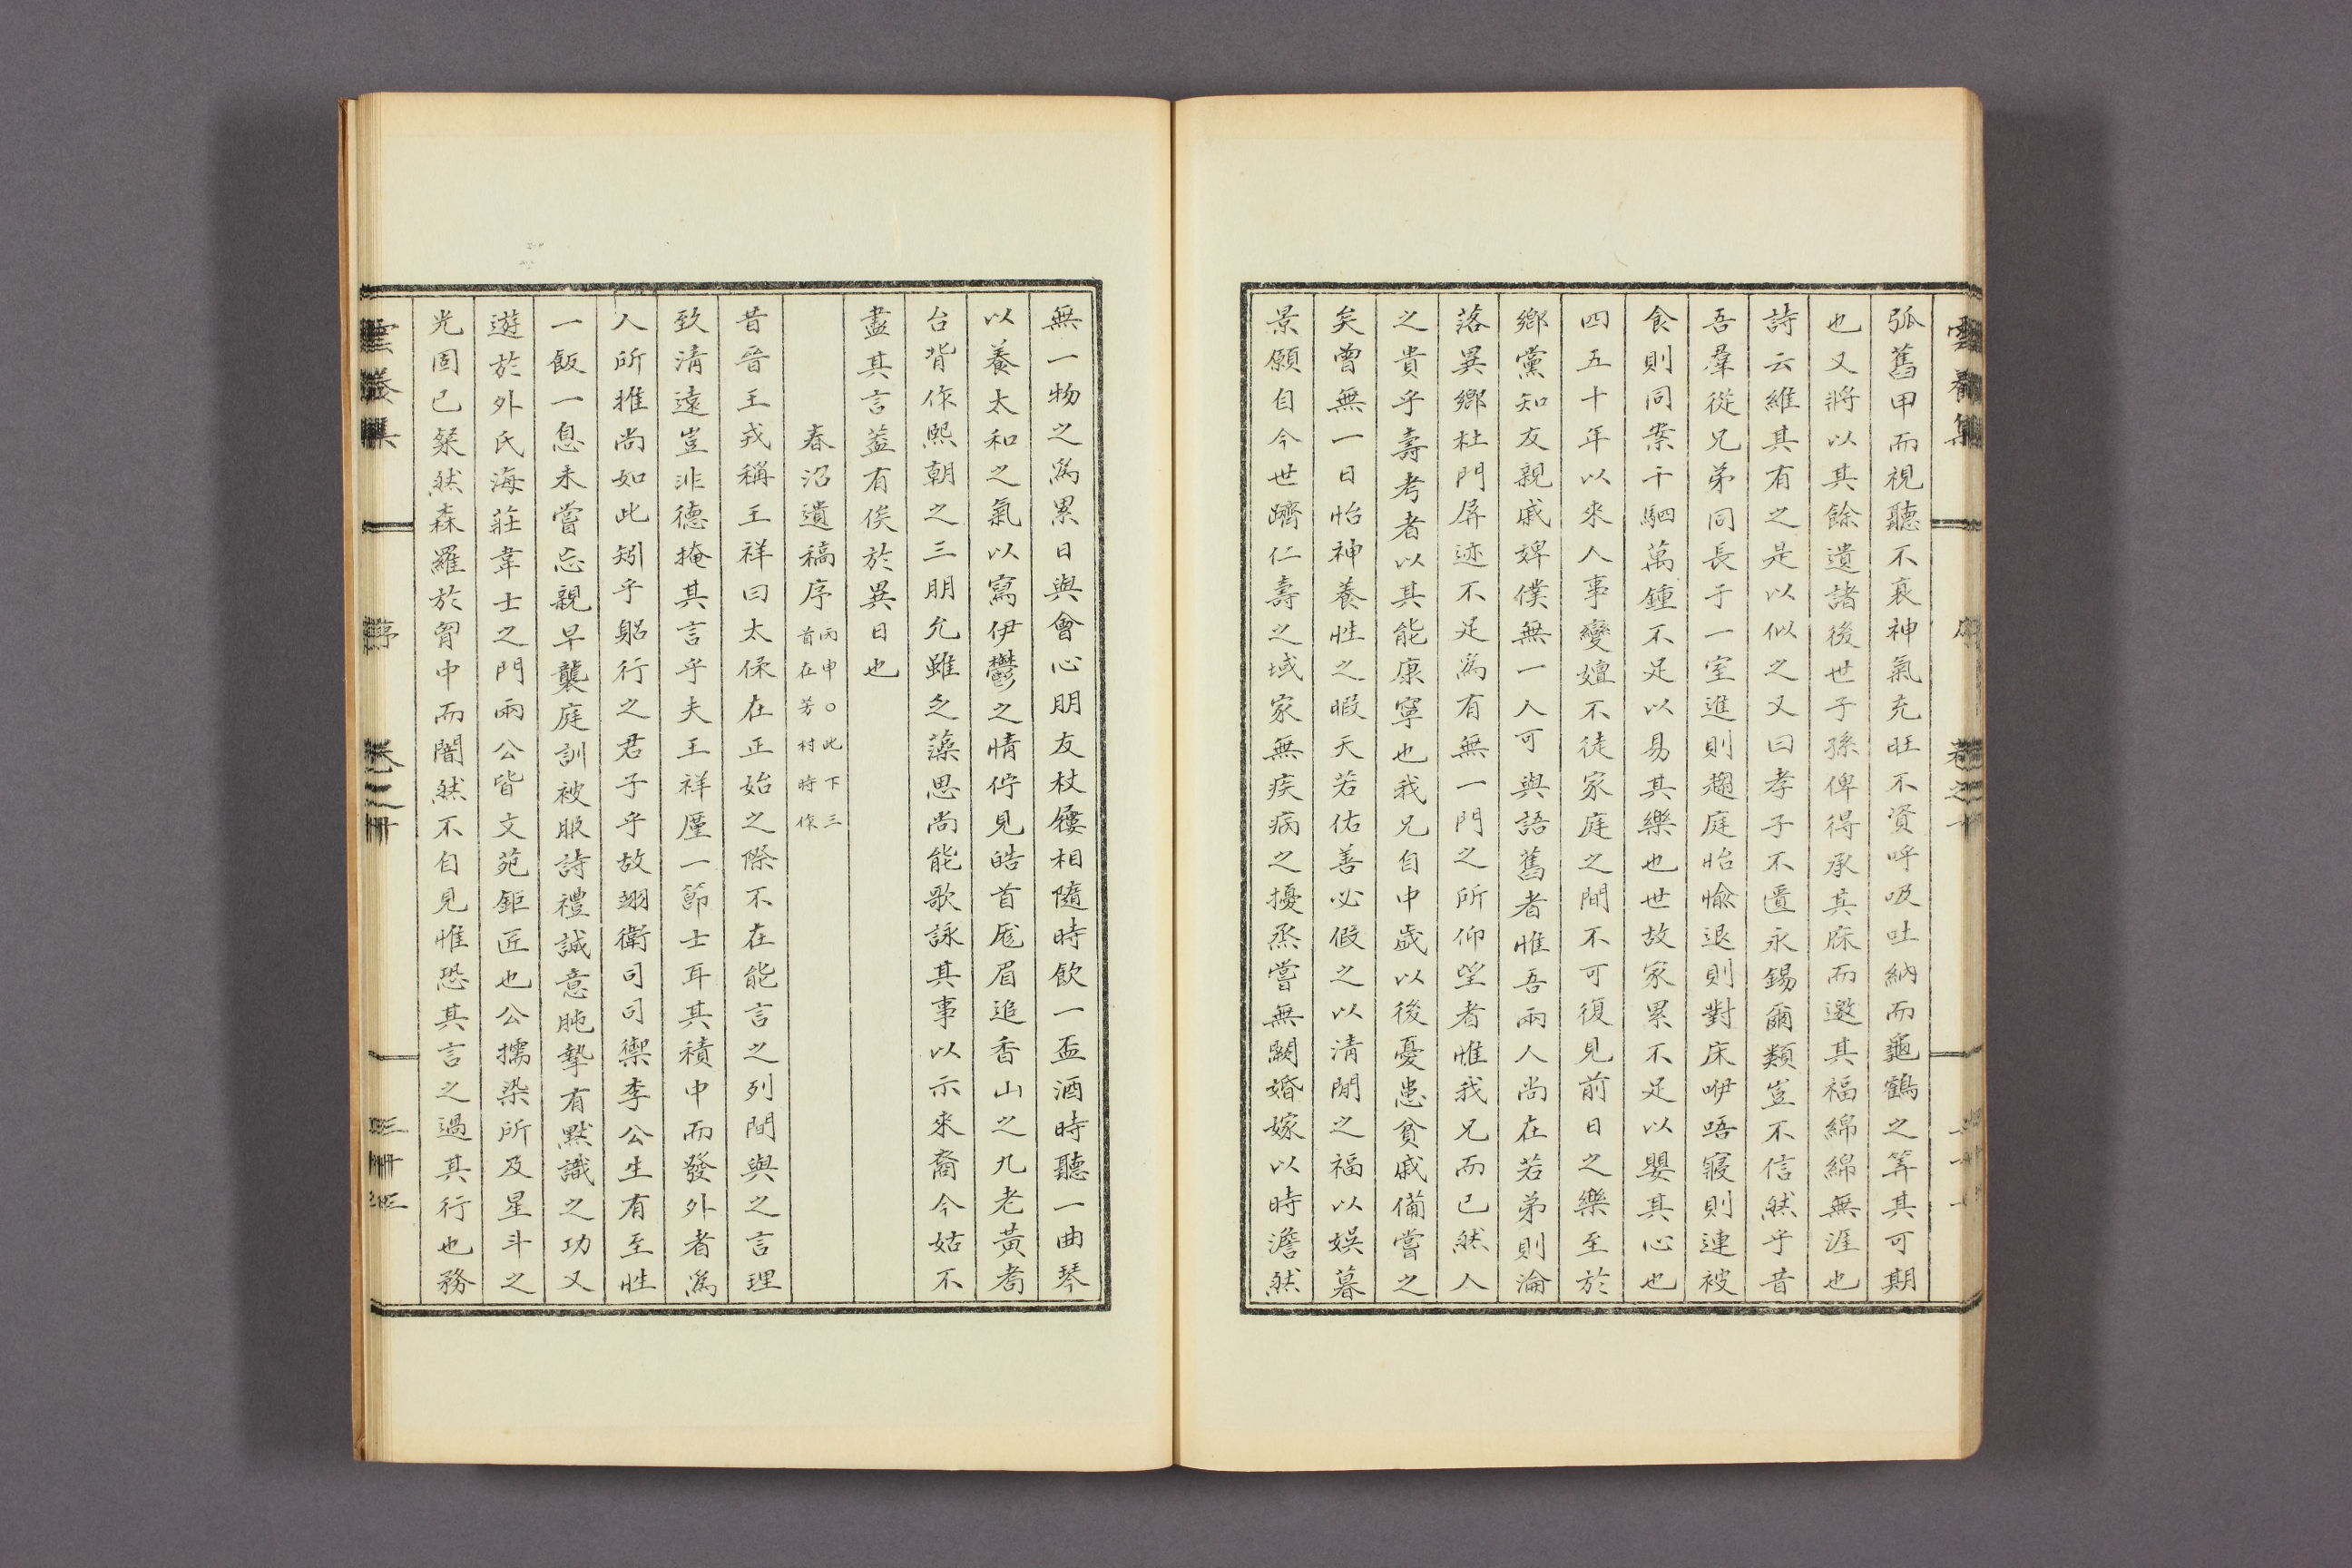 弧舊甲而視聽不衰神氣充旺不資呼吸吐納而龜鶴之筭其可期
也又將以其餘遺諸後世子孫俾得承其庥而邀其福綿綿無涯也
詩云維其有之是以似之又曰孝子不匱永錫爾類豈不信然乎昔
吾羣從兄弟同長于一室進則趨庭怡愉退則對床咿唔寢則連被
食則同案千駟萬鍾不足以易其樂也世故家累不足以嬰其心也
四五十年以來人事變嬗不徒家庭之間不可復見前日之樂至於
鄉黨知友親戚婢僕無一人可與語舊者惟吾兩人尚在若弟則淪
落異鄉杜門屏迹不足爲有無一門之所仰望者惟我兄而已然人
之貴乎壽考者以其能康寧也我兄自中歲以後憂患貧戚備嘗之
矣曾無一日怡神養性之暇天若佑善必假之以清閒之福以娛暮
景願自今世躋仁壽之域家無疾病之擾烝嘗無闕婚嫁以時澹然
無一物之爲累日與會心朋友杖屨相隨時飮一盃酒時聽一曲琴
以養太和之氣以寫伊鬱之情佇見皓首厖眉追香山之九老黃耈
台背作熙朝之三朋允雖乏藻思尚能歌詠其事以示來裔今姑不
盡其言蓋有俟於異日也
春沼遺稿序 丙申○此下三首在芳村時作
昔晉王戎稱王祥曰太保在正始之際不在能言之列間與之言理
致清遠豈非德掩其言乎夫王祥廑一節士耳其積中而發外者爲
人所推尚如此矧乎躬行之君子乎故翊衛司司禦李公生有至性
一飯一息未嘗忘親早襲庭訓被服詩禮誠意肫摯有默識之功又
遊於外氏海莊韋士之門兩公皆文苑鉅匠也公擩染所及星斗之
光固已粲然森羅於胷中而闇然不自見惟恐其言之過其行也務